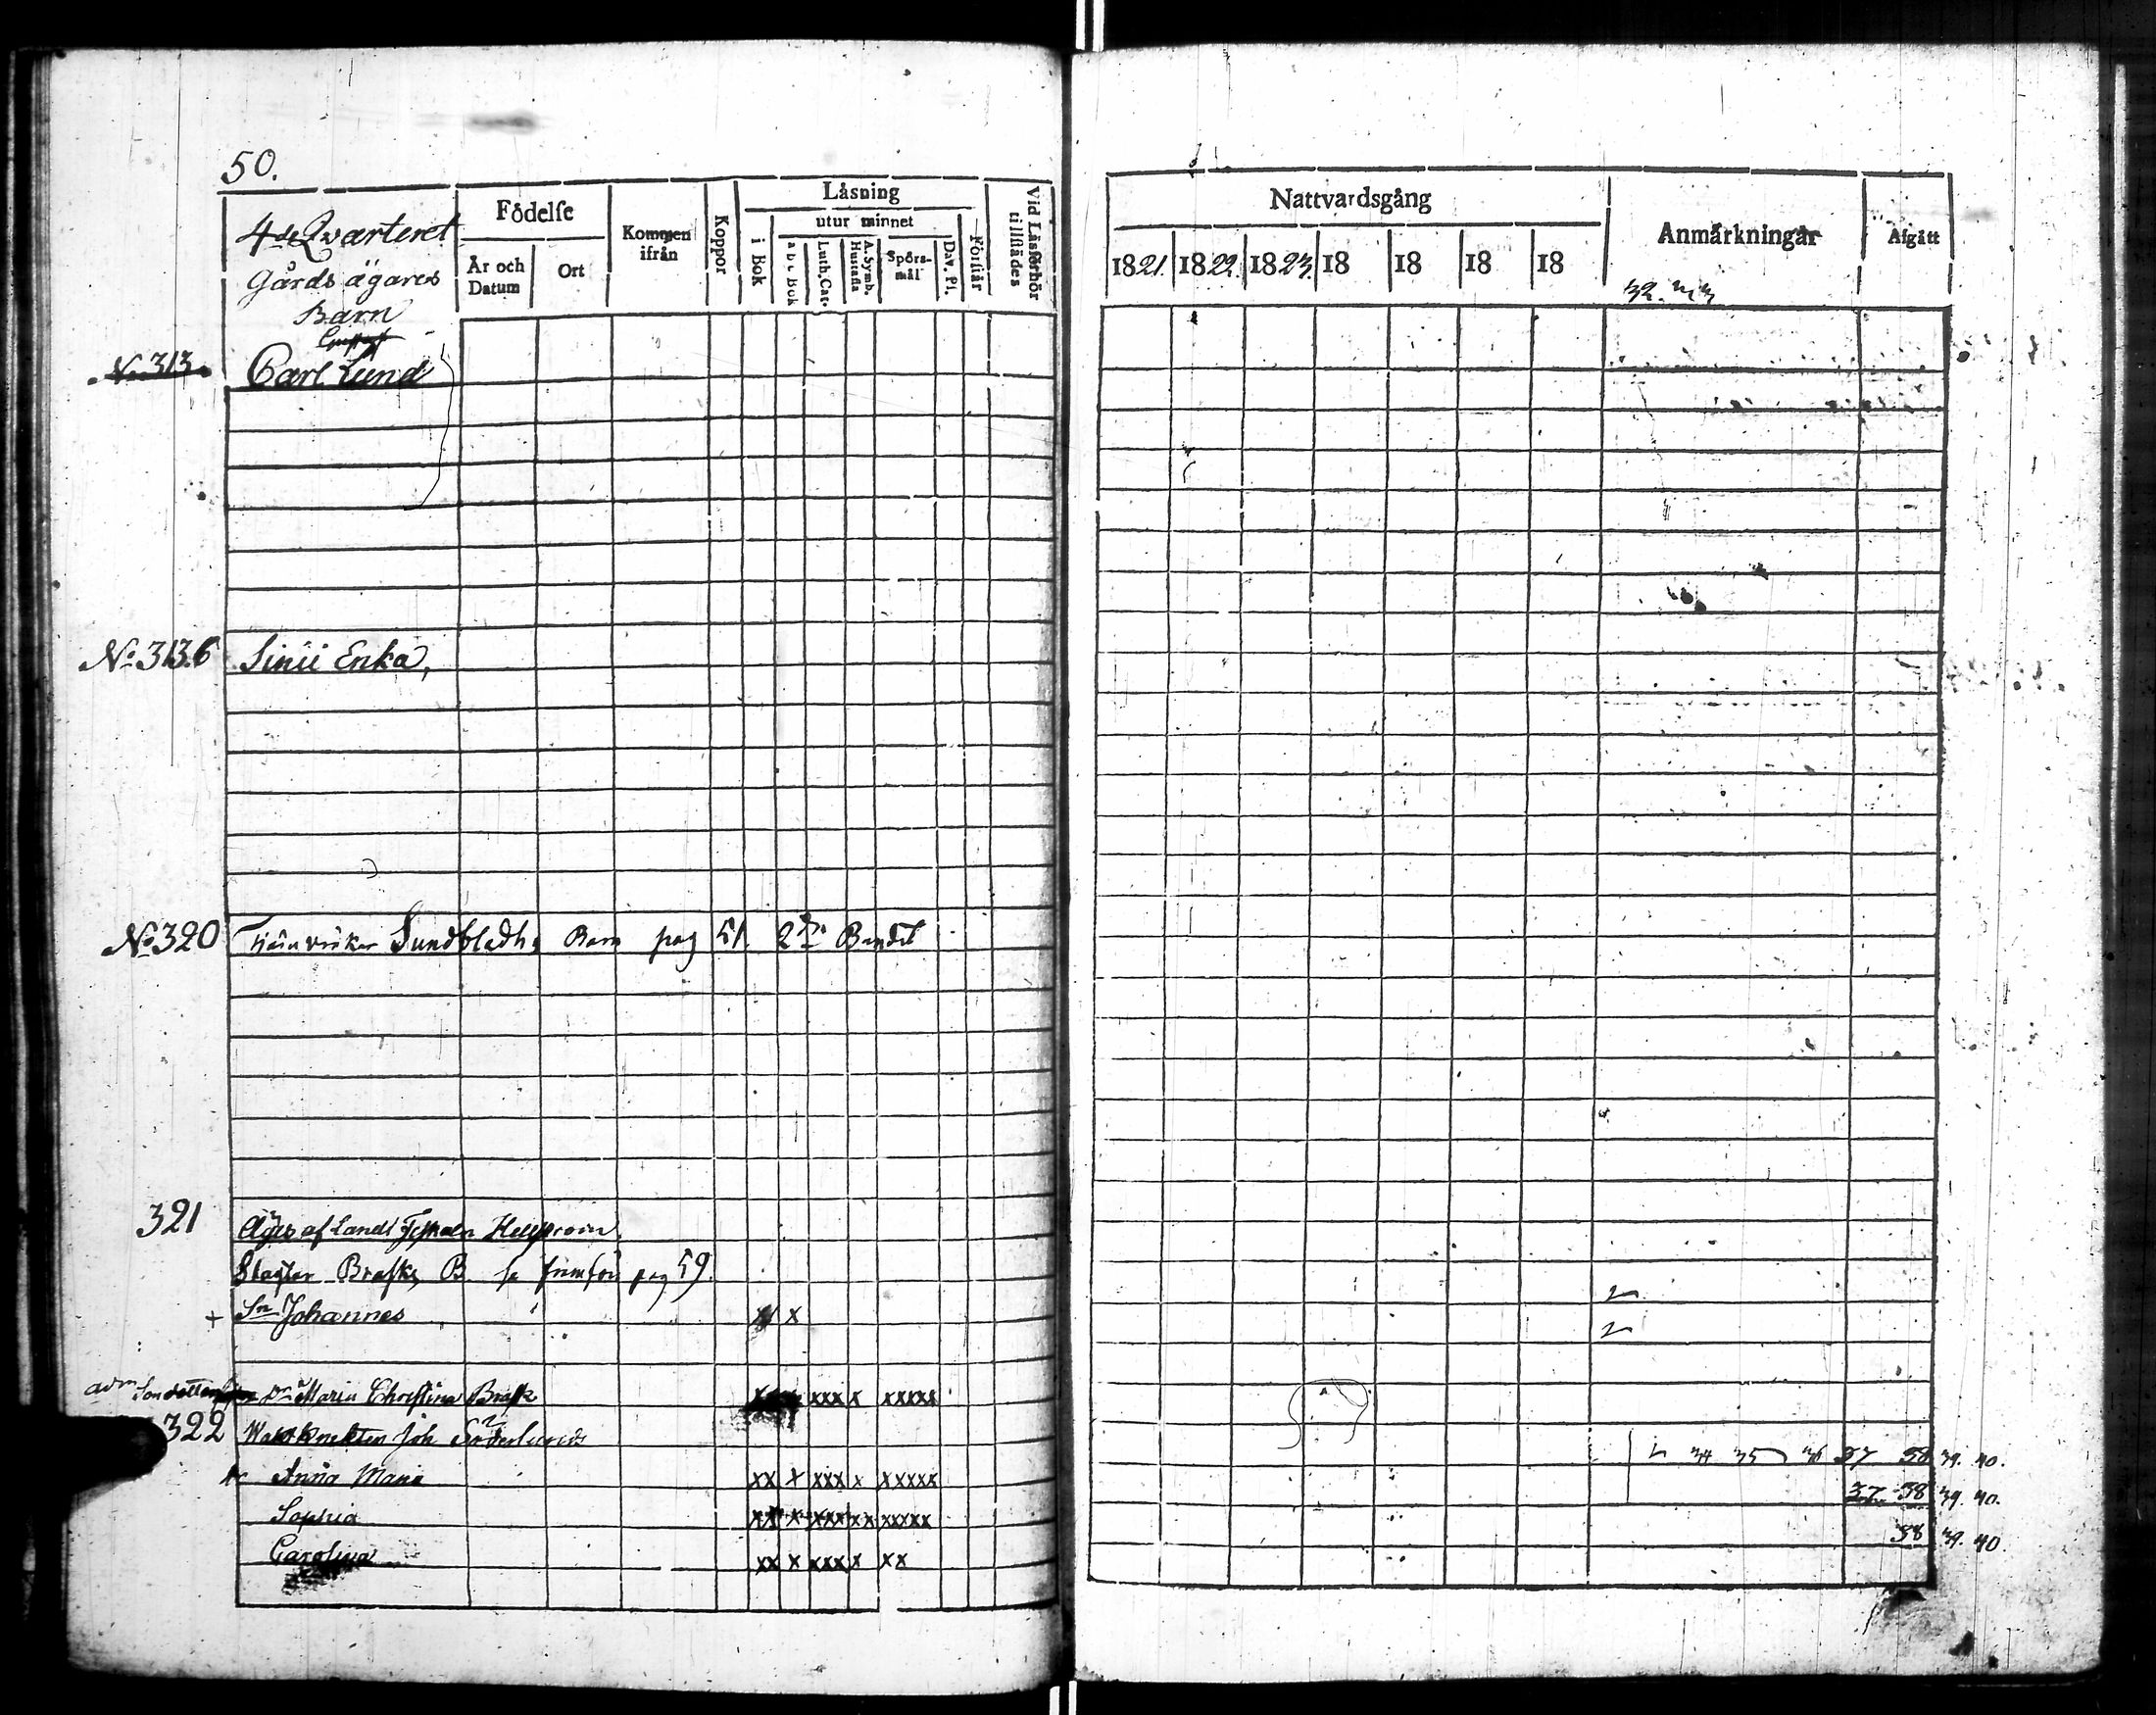 50.
4de Qvarteret
Gårds ägares
Barn
Födelse
År och Datum
Ort
Kommen ifrån
Koppor
Läsning
i Bok
utur minnet
a b c Bok
Luth. Cat.
A. Symb. Hustafla
Spörsmål
Dav. Ps.
Förstår
Vid Läsförhör tillstädes
Nattvardsgång
1821. 1822. 1823. 18 18 18 18
Anmärkningar
Afgått
No 313 Carl Lund
No 313.6 Linii Enka,
No 320 Sundbladhs Barn pag 51. 2dra Bandet
321 Äges af Landt
Slagtar Brask B. se pag 59.
+ Sn Johannes x
Dr Maria Christina Brask x xxx x xxxxx
322 Joh Söderlunds
Anna Maria xx x xxx x xxxxx 34 35 36 37 38 39. 40.
Sophia xx x xxx xx xxxxx 37 38 39. 40.
Carolina xx x xxx x xx 38 39. 40.